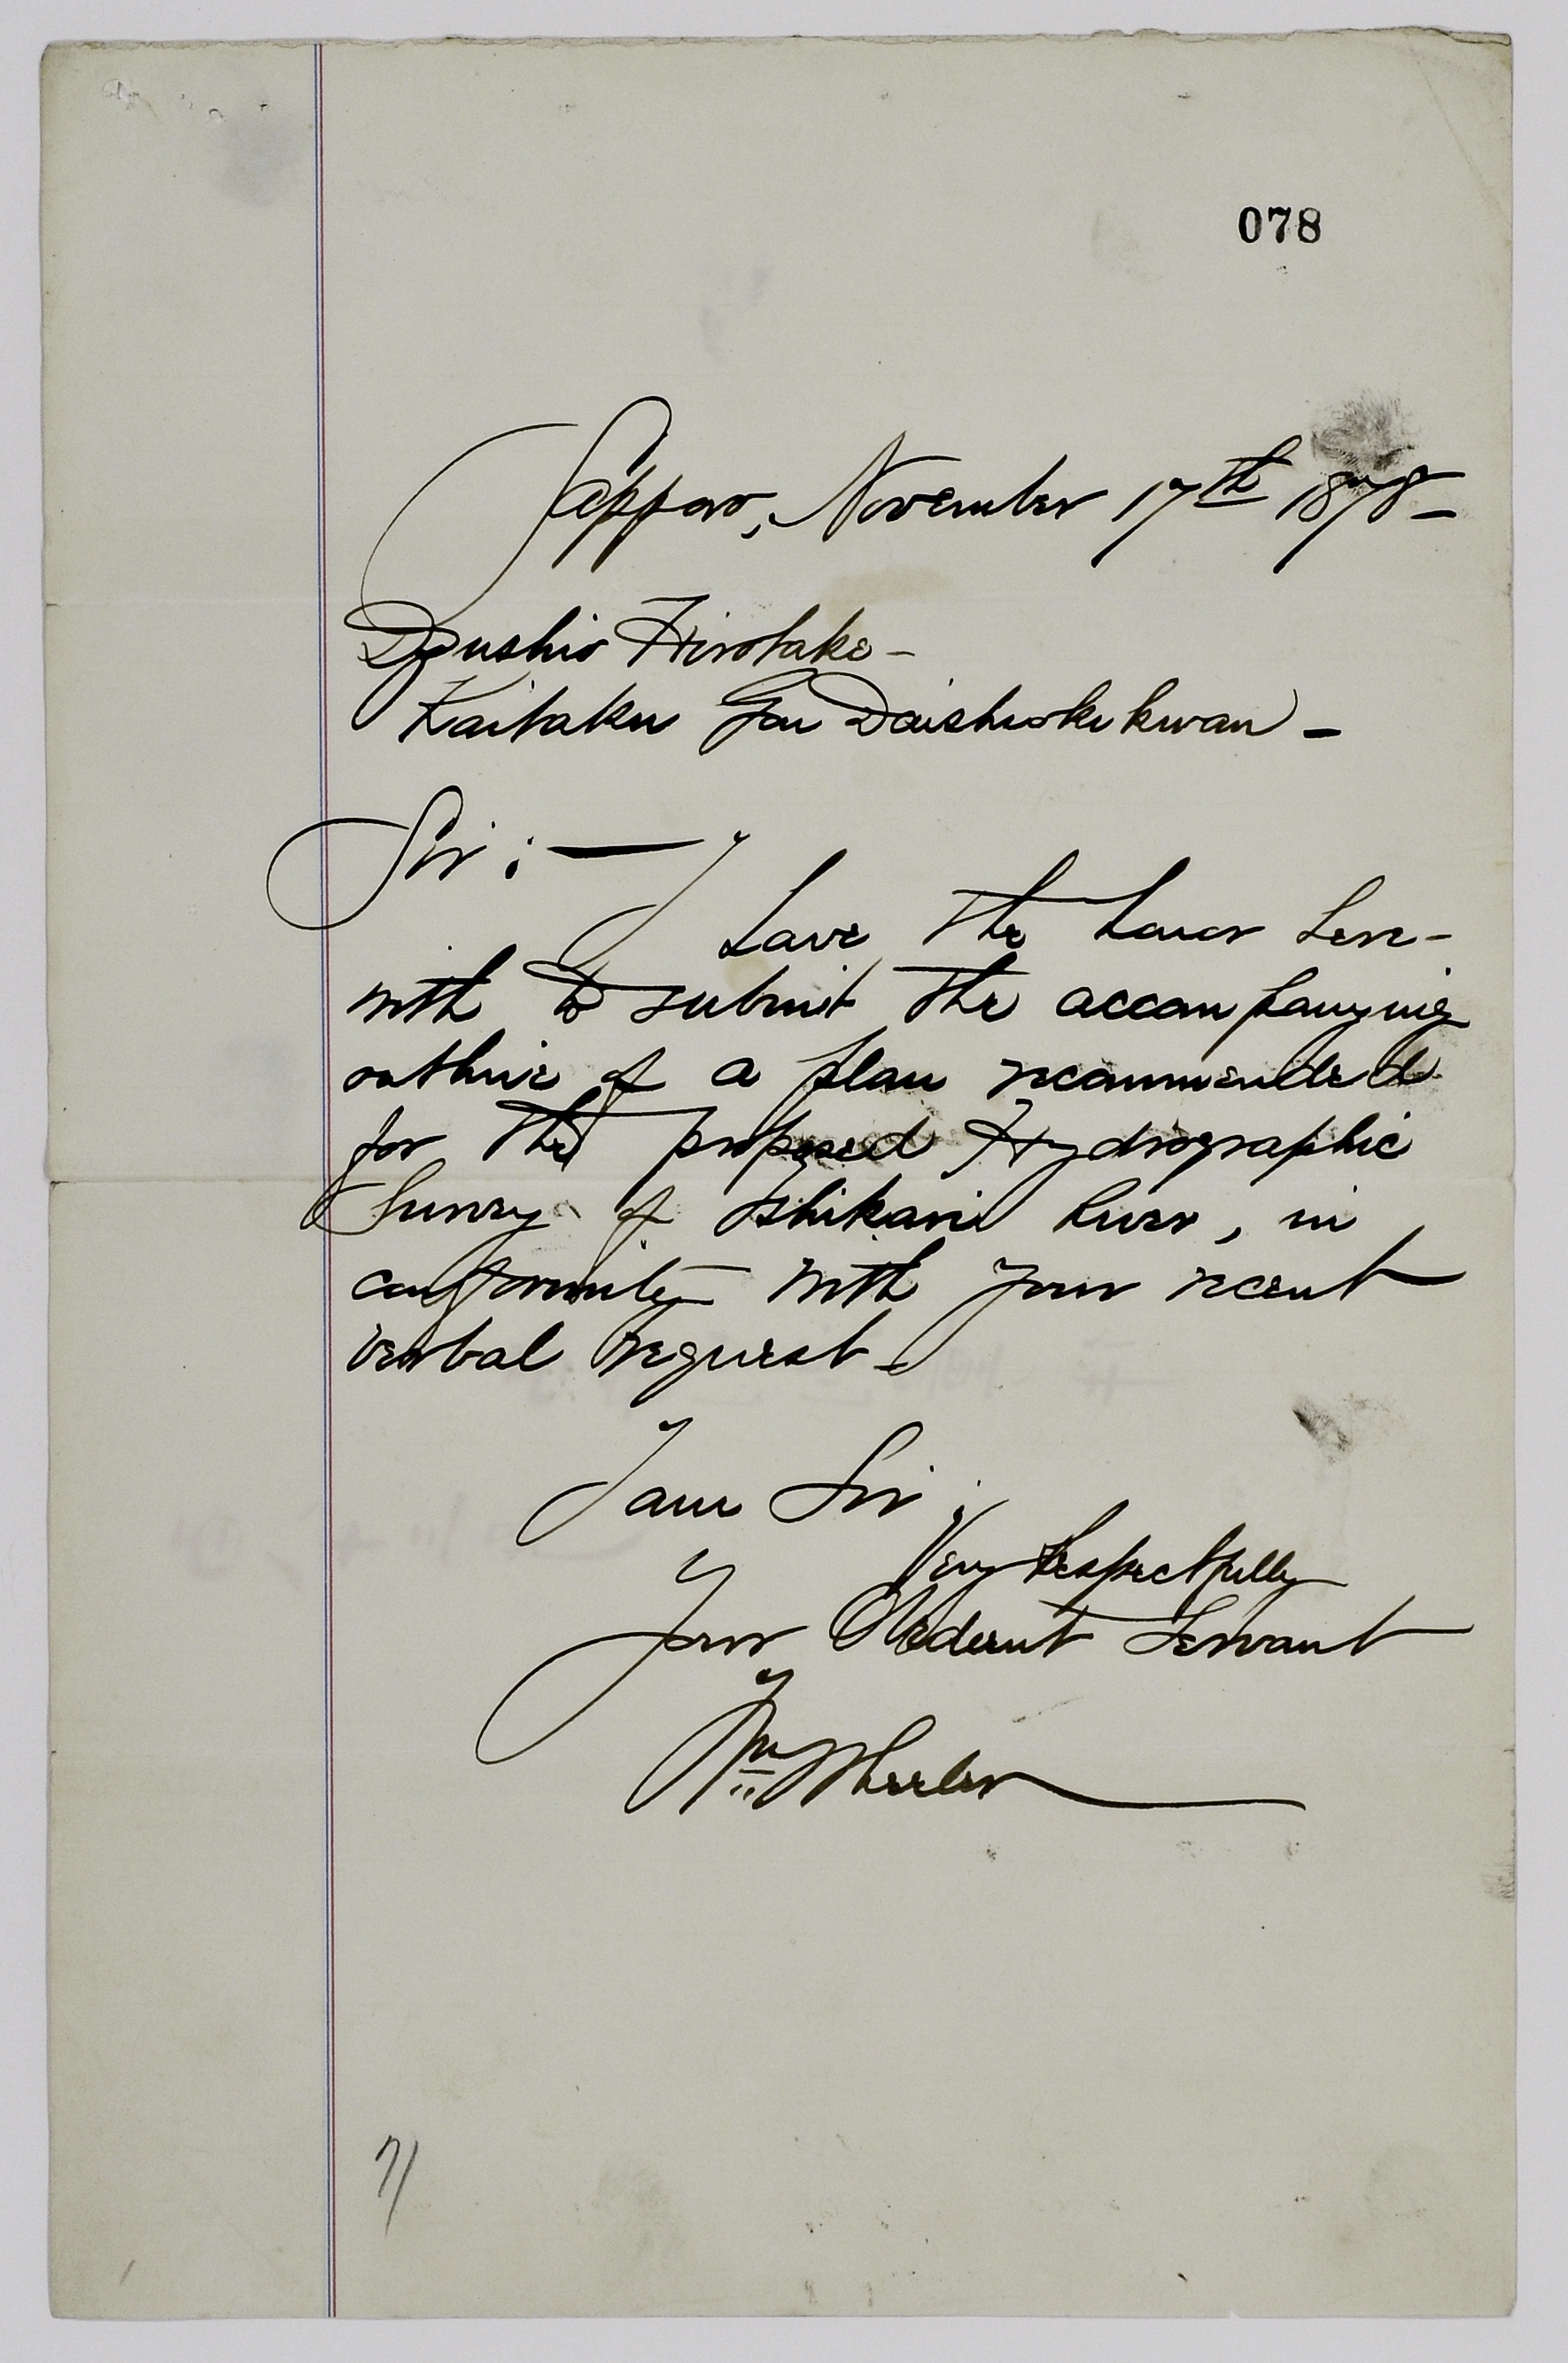 078
Sapporo, November 17th 1878-
Dzushio Hirotake-
Kaitaku Gon Daishiokikwan-
Sir:—
I have the honor here-
with to submit the accompanying
outline of a plan recommended
for the proposed Hydrographic
Survey of Ishikari River, in
conformity with your recent
verbal request-
I am Sir;
Very Respectfully
Your Obedient Servant
Wm Wheeler
71